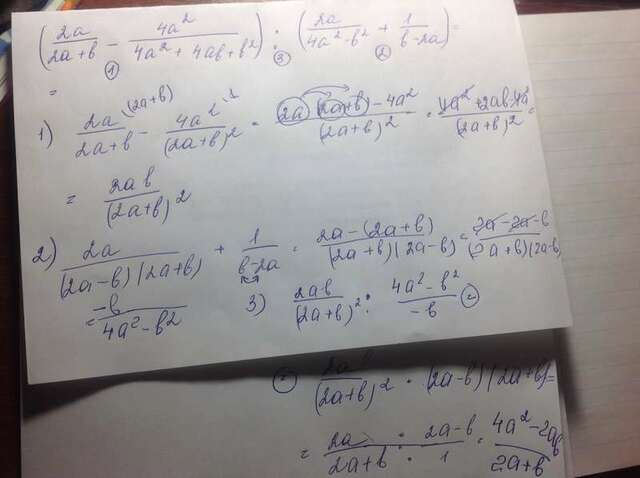 (2a/(2a+b) - 4a²/(4a²+4ab+b²)) : (2a/(4a²-b²) + 1/(b-2a)) =
① ③ ②
=
1) 2a\(2a+b)/(2a+b) - 4a²\1/(2a+b)² = (2a(2a+b)-4a²)/(2a+b)² = (4a²+2ab-4a²)/(2a+b)² =
= 2ab/(2a+b)²
2) 2a/((2a-b)(2a+b)) + 1/(b-2a) = (2a-(2a+b))/((2a+b)(2a-b)) = (2a-2a-b)/((2a+b)(2a-b))
= -b/(4a²-b²) 3) 2ab/(2a+b)² : (4a²-b²)/(-b) =
= 2ab/(2a+b)² · (2a-b)(2a+b) =
= 2a/(2a+b) · (2a-b)/1 = (4a²-2ab)/(2a+b)